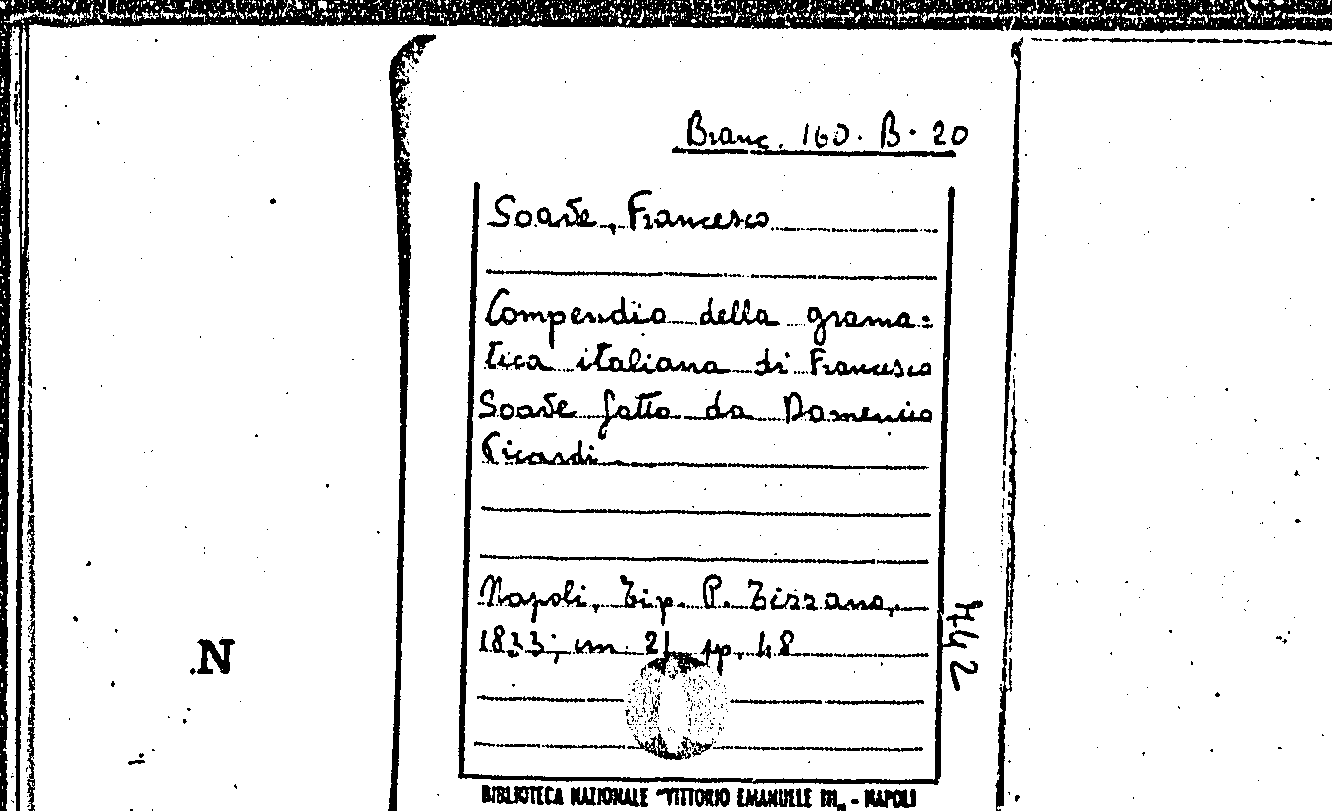 Branc. 160. B. 20
Soave, Francesco
Compendio della grama=
tica italiana di Francesco
Soave fatto da Domenico
Picardi
Napoli, Tip. P. Tizzano,
1833; in 21 pp. 48
742
N.
BIBLIOTECA NAZIONALE "VITTORIO EMANUELE III„ - NAPOLI